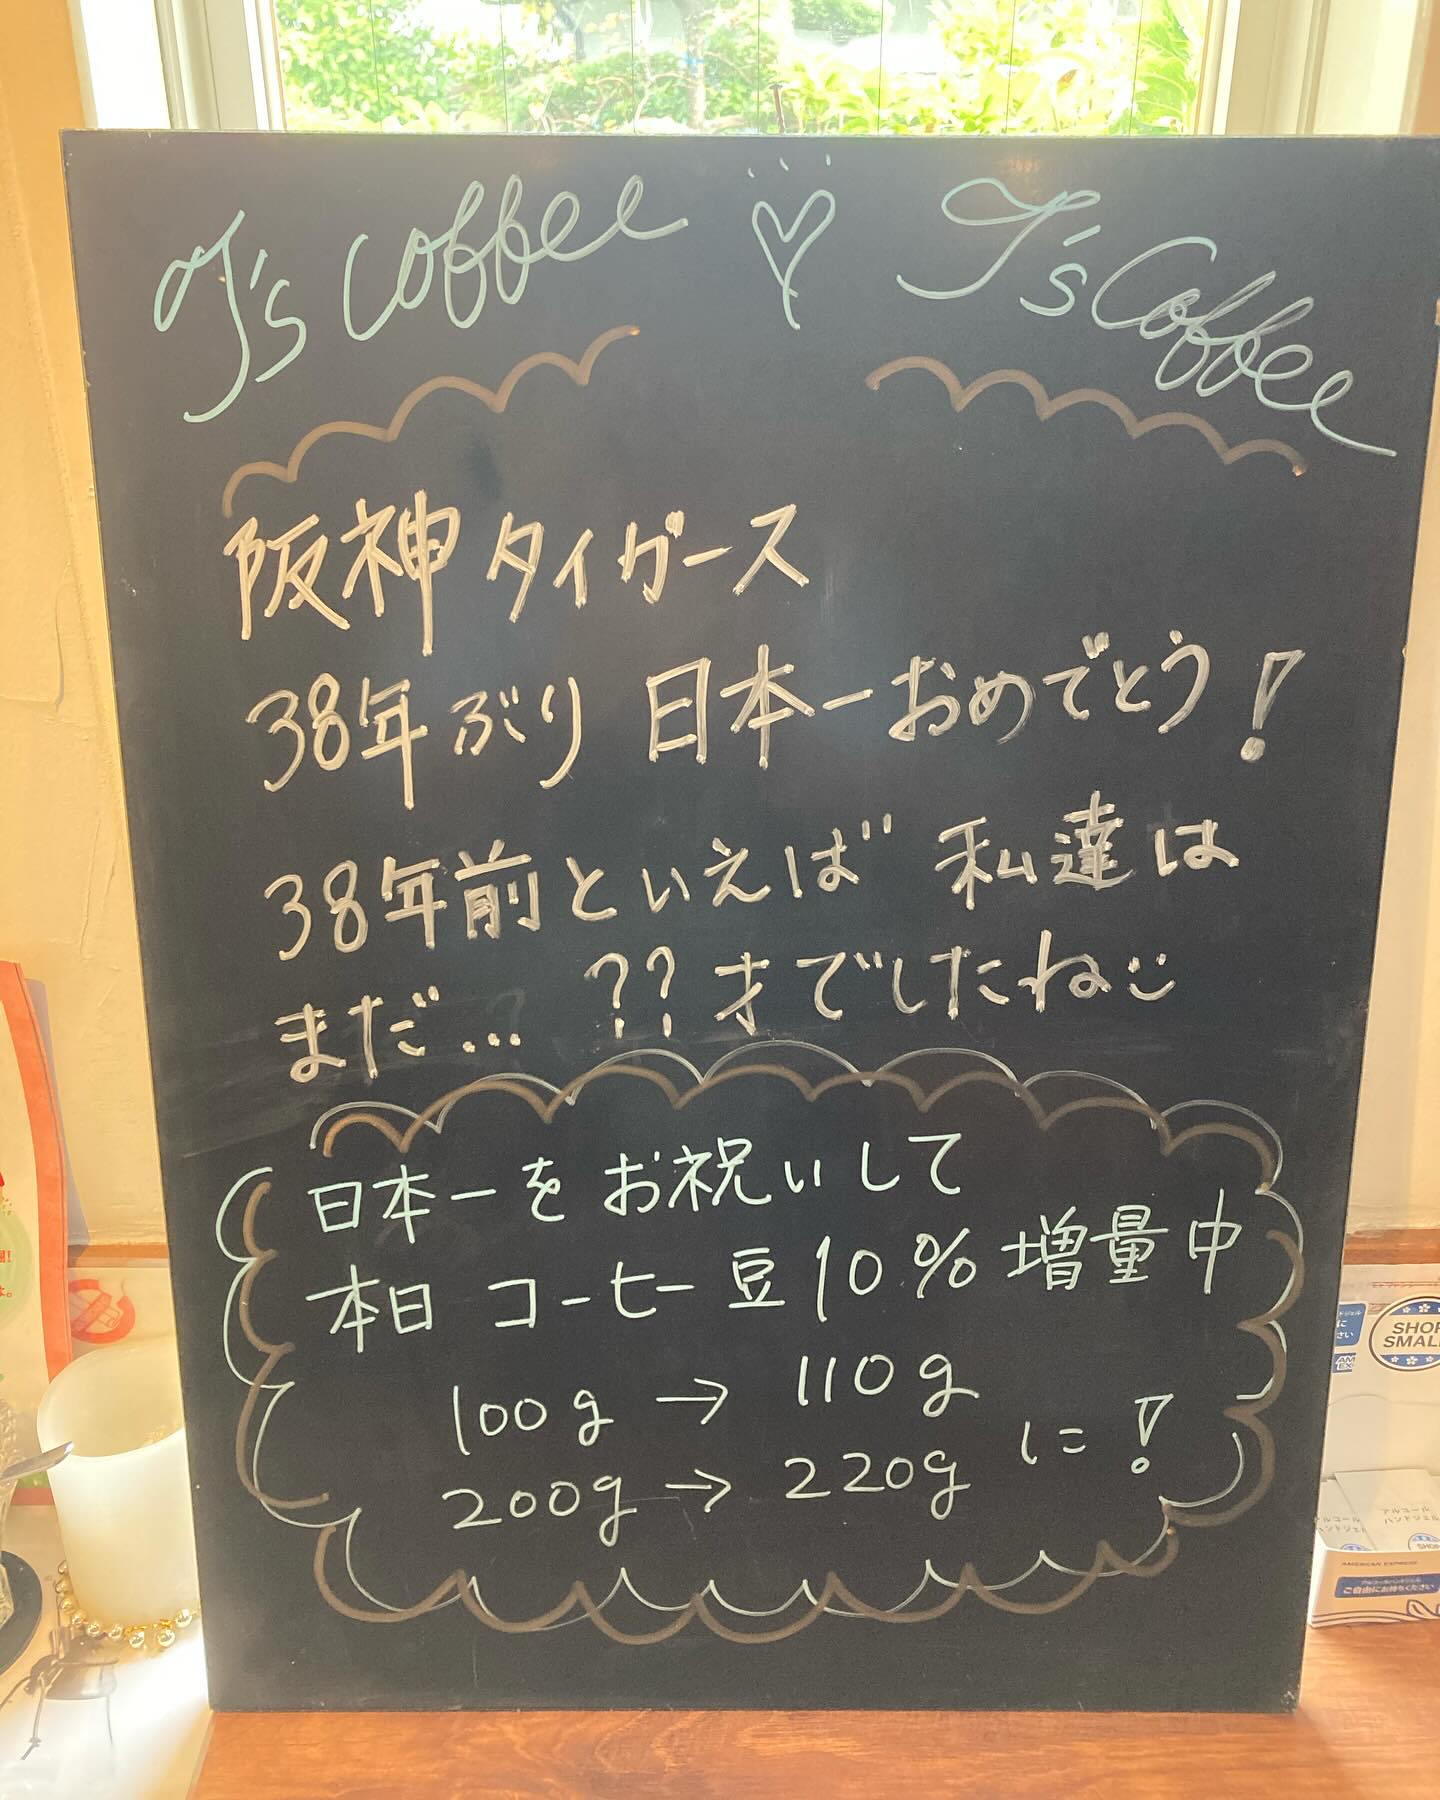 T's Coffee ♡ T's Coffee
阪神タイガース
38年ぶり 日本一おめでとう!
38年前といえば 私達は
まだ... ??才でしたね
日本一をお祝いして
本日 コーヒー豆10%増量中
100g → 110g
200g → 220g に!
SHOP
SMALL
アルコール
ハンドジェル
AMERICAN EXPRESS
アルコールハンドジェル
ご自由にお持ちください